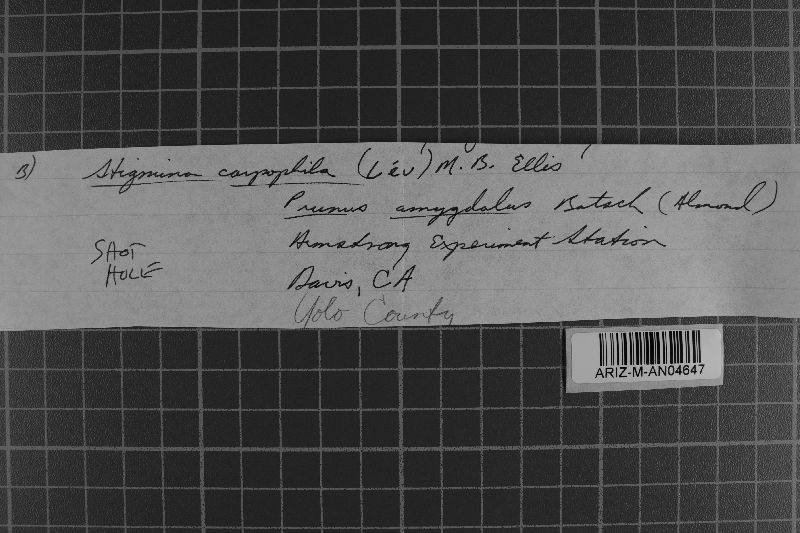 B) Stigmina carpophila (Lév) M. B. Ellis
Prunus amygdalus Batsch (Almond)
SHOT HOLE
Armstrong Experiment Station
Davis, CA
Yolo County
ARIZ-M-AN04647